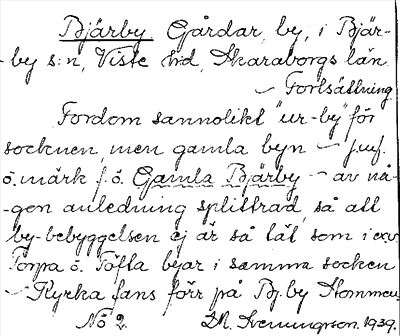 Bjärby Gårdar, by, i Bjär-
by s:n, Viste hd, Skaraborgs län.
— Fortsättning
Fordom sannolikt "ur-by" för
socknen, men gamla byn — jmf.
ö. märk f. ö. Gamla Bjärby — av nå-
gon anledning splittrad, så att
by-bebyggelsen ej är så tät som i ex.
Torpa o. Töfta byar i samma socken
— Kyrka fans förr på Bj. by
No 2. 1939.